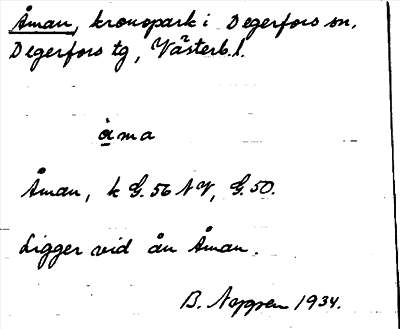 Åman, kronopark i Degerfors sn.
Degerfors tg, Västerb. l.
åma
Åman, k G. 56 NV, G. 50.
Ligger vid ån Åman.
B. Nygren 1934.